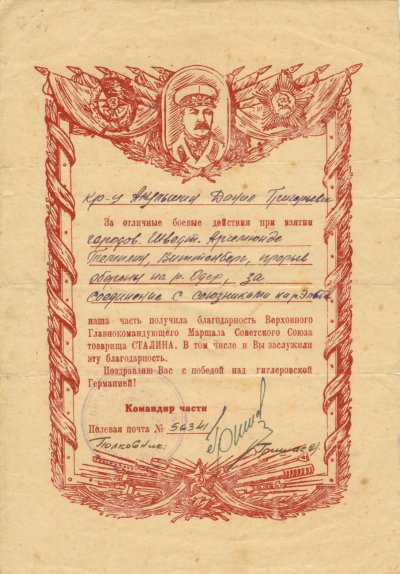 кр-у Акулькину Григорьеви
За отличные боевые действия при взятии
городов. Шведт. Ангемюнде
Темплин, Виттенберг, прорыв
обороны на р. Одер, за
соединение с союзниками на р. Эльба
наша часть получила благодарность Верховного
Главнокомандующего Маршала Советского Союза
товарища СТАЛИНА. В том числе и Вы заслужили
эту благодарность.
Поздравляю Вас с победой над гитлеровской
Германией!
Командир части
Полевая почта № 56341
Полковник: